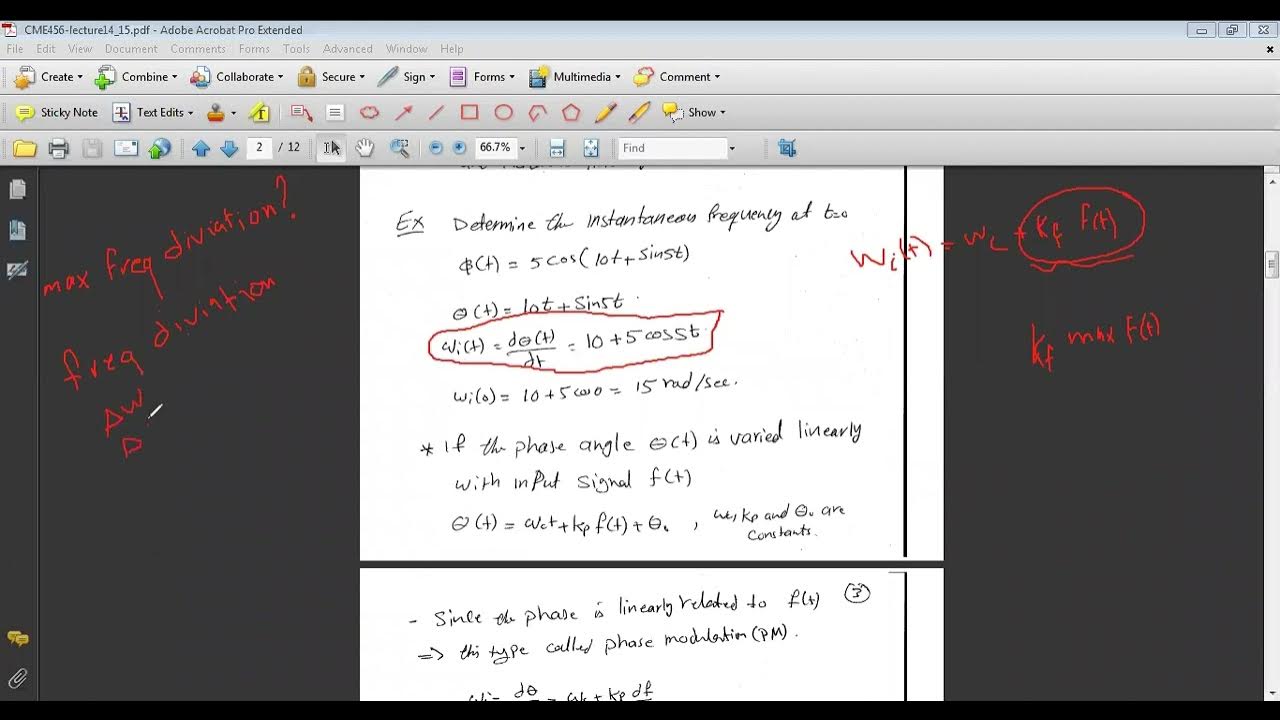 CME456-lecture14_15.pdf - Adobe Acrobat Pro Extended
File Edit View Document Comments Forms Tools Advanced Window Help
Create Combine Collaborate Secure Sign Forms Multimedia Comment
Sticky Note Text Edits Show
2 / 12 66.7% Find
max freq diviation?
freq diviation
Δω
Δ
Ex Determine the instantaneous frequency at t=0
ϕ(t) = 5 cos(10t + sin5t)
θ(t) = 10t + sin5t.
ωi(t) = dθ(t)/dt = 10 + 5 cos5t.
ωi(0) = 10 + 5 cos0 = 15 rad/sec.
* If the phase angle θ(t) is varied linearly
with input signal f(t)
θ(t) = ωct + kp f(t) + θ₀ , ωc, kp and θ₀ are
constants.
Wi(t) = Wc + kf f(t)
kf max f(t)
- Since the phase is linearly related to f(t) (3)
⇒ this type called phase modulation (PM).
ωi = dθ = ωc + kp df